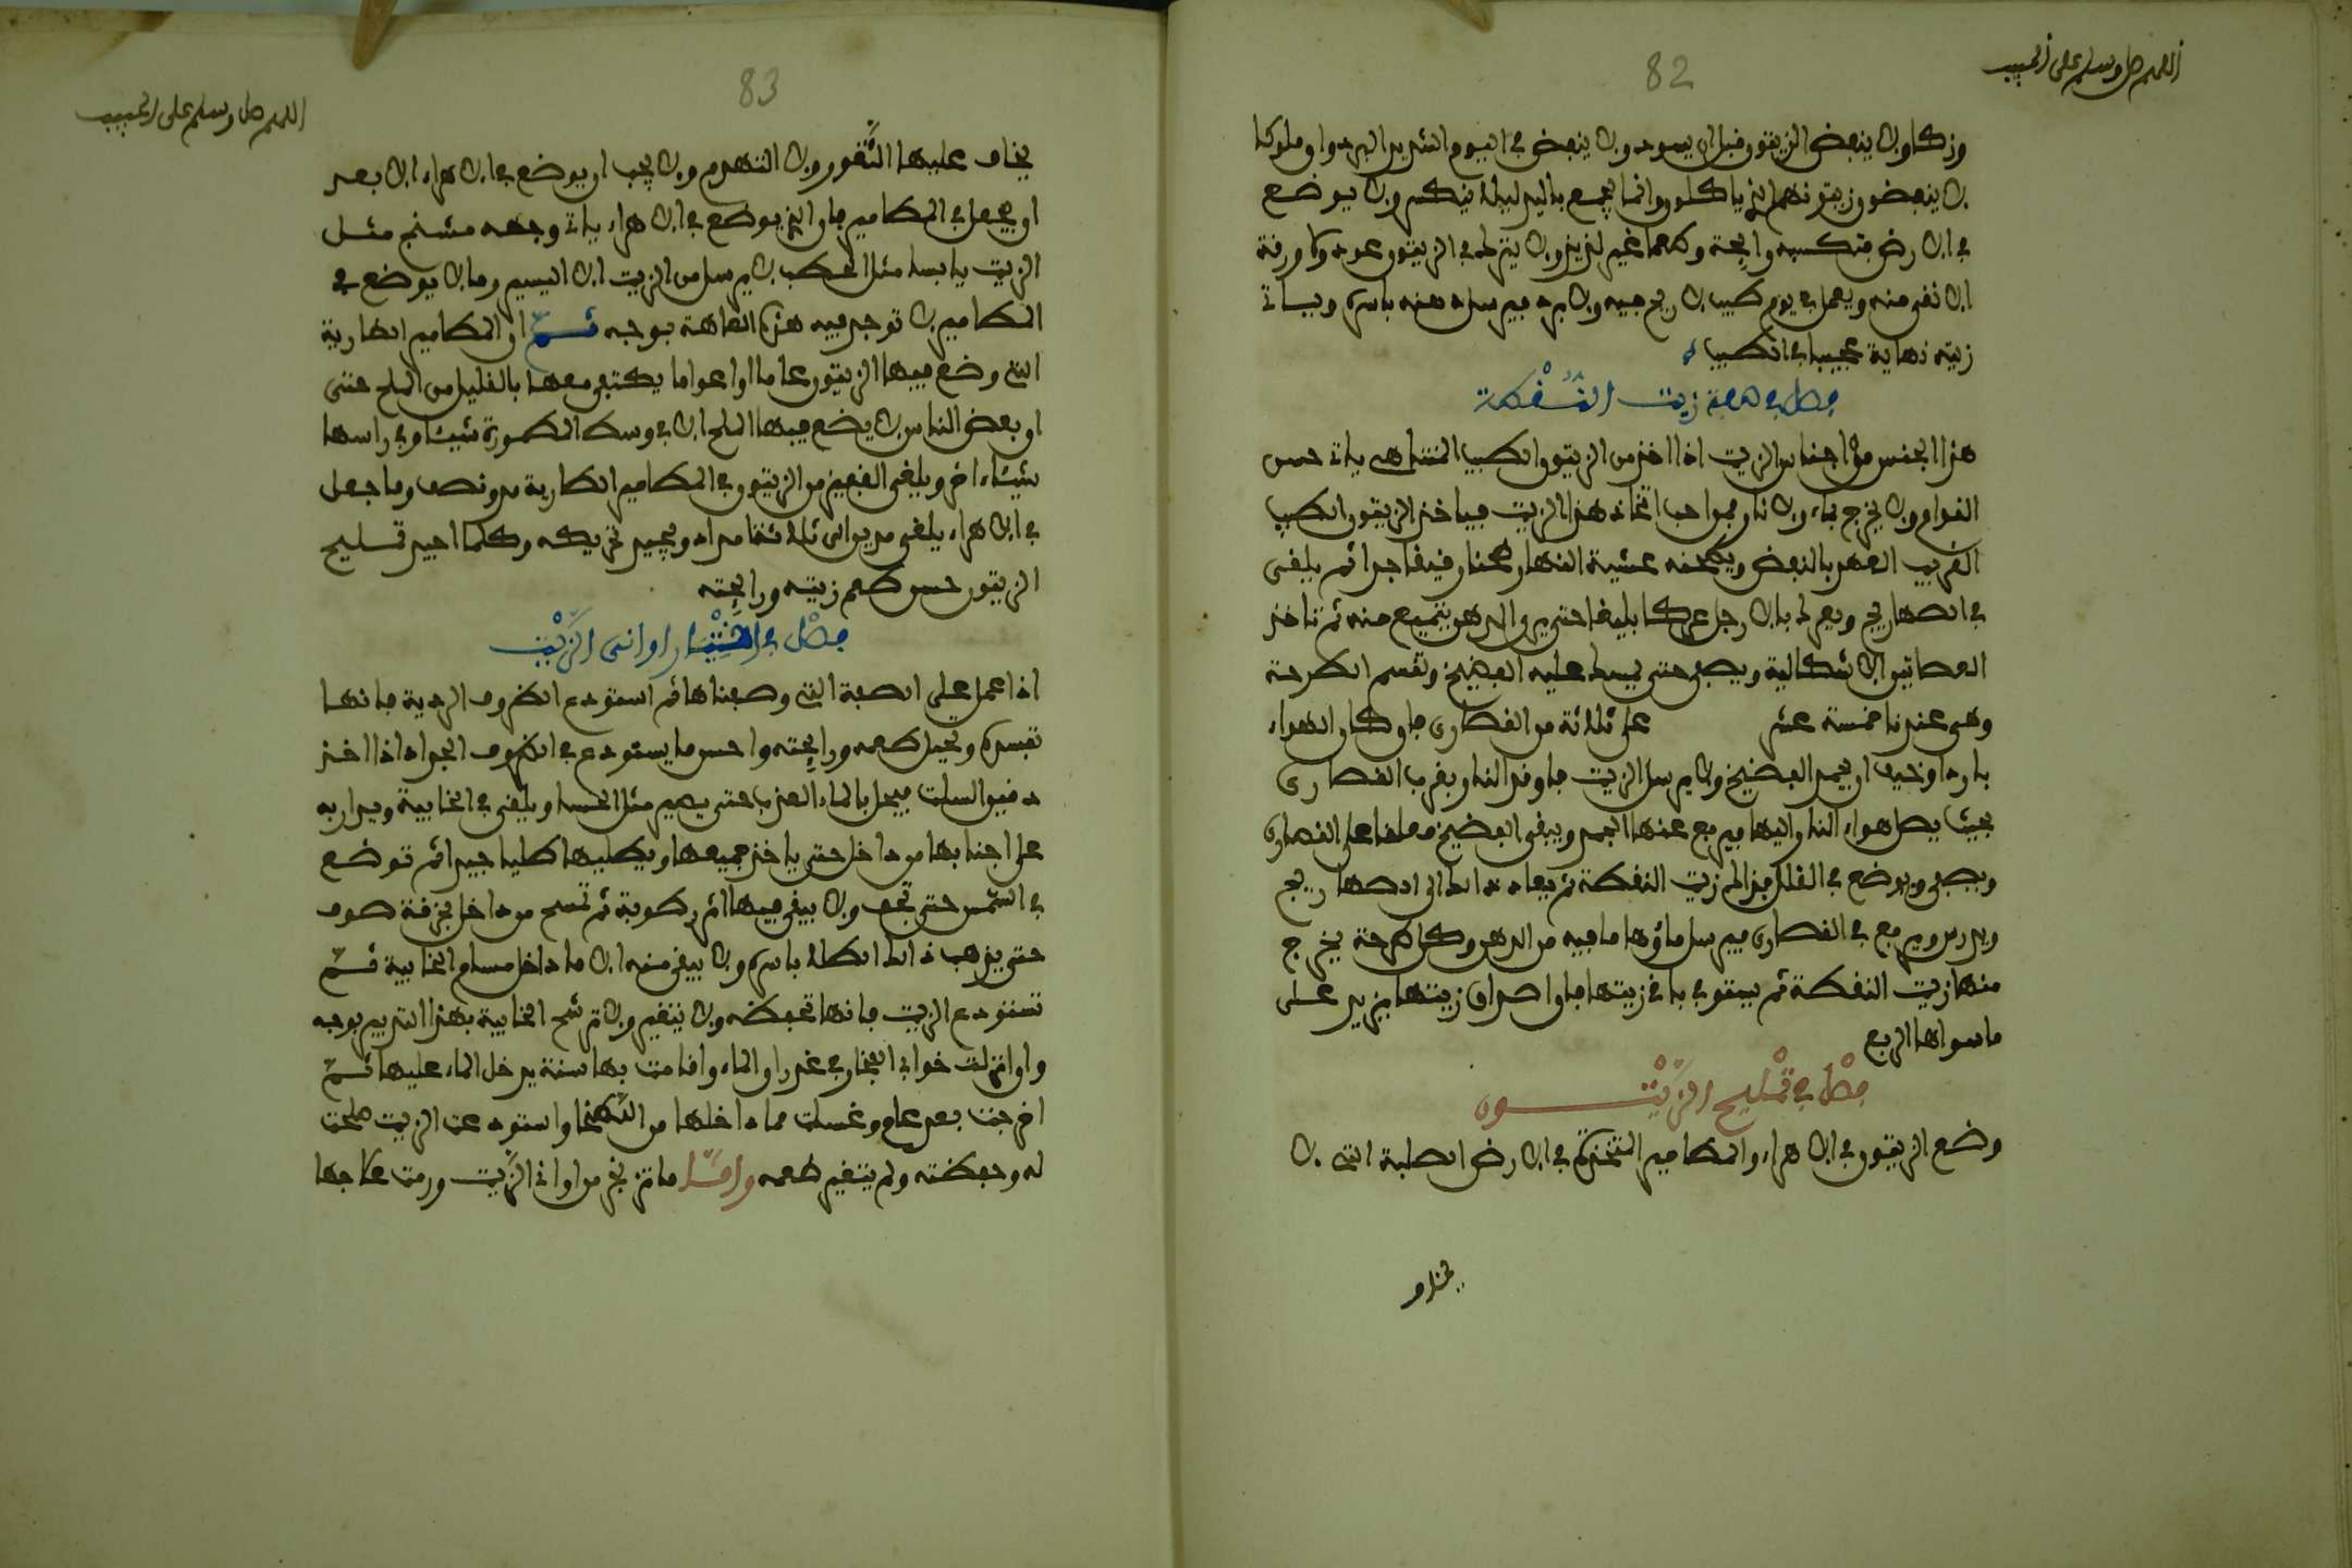 اللهم صل وسلم على الحبيب
82
وزكا ولا ينفض الزيتون قبل ان يسود ولا ينفض في اليوم الشديد البرد او
لا ينفضون زيتونهم الذي ياكلون وانما يجمع باليد ليلا ينكسر ولا يوضع
في الارض فتكسبه رايحة وطعما غير لذيذ ولا يترك في الزيتون عود ولا ورقة
الا نقي منه ويعمل في يوم طيب لا ريح فيه ولا برد فيرسل دهنه باسره وياتي
زيته نهاية عجيبا في الطيب
فصل في صفة زيت النفطة
هذا الجنس من اجناس الزيت اذا اخذ من الزيتون الطيب المتناهي ياتي حسن
القوام ولا يخرج بماء ولا نار فمن احب اتخاذ هذا الزيت فياخذ الزيتون الطيب
القريب العهد بالنفض ويطحنه عشية النهار طحنا رقيقا جدا ثم يلقى
في الصهاريج ويعرك بالارجل عركا بليغا حتى يروا الدهن يتميع منه ثم تاخذ
العصاتين الاشكالية ويصفى حتى يسيل عليه الفضيخ وتقسم الطرحة
وهي عندنا خمسة عشر على ثلاثة من القصارى فان كان الهواء
باردا وخيف ان يجمد الفضيخ ولا يرسل الزيت فاوقد النار بقرب القصارى
بحيث يصل هواء النار اليها فيرفع عنها الجمد ويبقى الفضيخ معلقا على القصارى
ويصفى ويوضع في القلل فذلك زيت النفطة ثم يعاد ذلك الى الصهاريج
ويدرس ويرفع في القصارى فيرسل ماؤها ما فيه من الدهن وكل طرحة يخرج
منها زيت النفطة ثم يستوفي باقي زيتها فان اصداق زيتها يزيد على
ما سواها الربع
فصل في تمليح الزيتون
وضع الزيتون في الاهراء والمطامير المتخذة في الارض الصلبة التي لا
يخاف
اللهم صل وسلم على الحبيب
83
يخاف عليها التغور ولا التهدم ولا يجب ان يوضع في الاهراء الا بعد
او يجعل في المطامير فان الذي يوضع في الاهراء ياتي وجهه مشنج مثل
الزيت يابسا مثل الحطب لا يرسل من الزيت الا اليسير وما لا يوضع في
المطامير لا توجد فيه هذه العاهة بوجه ثم ان المطامير الطارية
التي وضع فيها الزيتون عاما او اعواما يكتفى معها بالقليل من الملح حتى
ان بعض الناس لا يضع فيها الملح الا في وسط المطمورة شيئا وفي راسها
شيئا اخر ويلقى القفيز من الزيتون في المطامير الطارية مد ونصف وما جعل
في الاهراء يلقى مدين الى ثلاثة امداد ويجيد تحريكه وكلما اجيد تمليح
الزيتون حسن طعم زيته ورايحته
فصل في اختيار اواني الزيت
اذا عمل على الصفة التي وصفناها ثم استودع الظروف الردية فانها
تفسده وتحيل طعمه ورايحته واحسن ما يستودع في الظروف الجواد اذا اخذ
دقيق السلت فيحل بالماء العذب حتى يصير مثل الحسا ويلقى في الخابية ويدار به
على اجنابها من داخل حتى ياخذ جميعها ويطليها طليا جيدا ثم توضع
في الشمس حتى تجف ولا يبقى فيها اثر رطوبة ثم تمسح من داخل بخرقة صوف
حتى يذهب ذلك الطلا باسره ولا يبقى منه الا ما داخل مسام الخابية ثم
تستودع الزيت فانها تحفظه ولا يتغير ولا ترشح الخابية بهذا التدبير بوجه
وان انزلت خوابي الفخار في غدران الماء واقامت بها سنة يدخل الماء عليها ثم
اخرجت بعد عام وغسلت مما داخلها من الطحلب واستودعت الزيت صلحت
له وحفظته ولم يتغير طعمه واما ما تزنخ من اواني الزيت ورمت علاجها